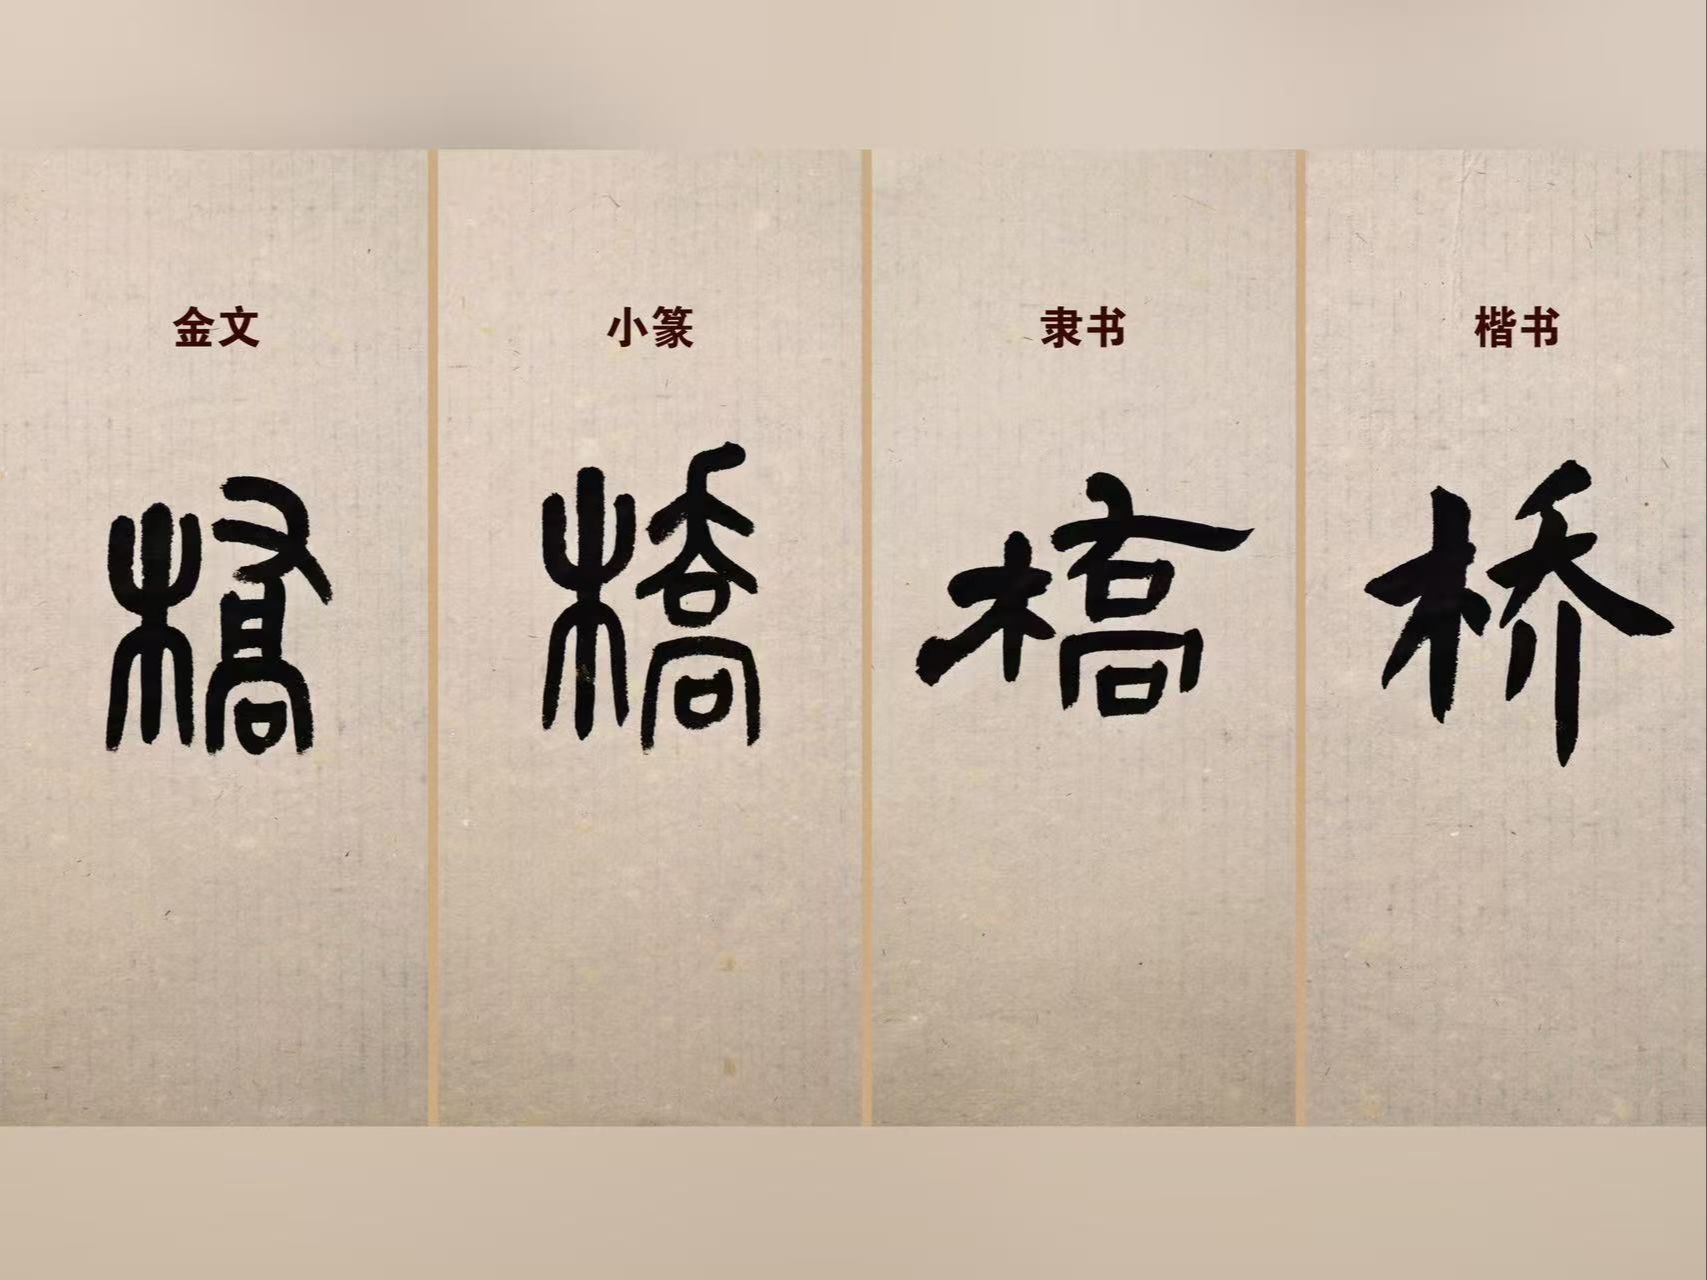 金文 小篆 隶书 楷书
橋 橋 橋 桥